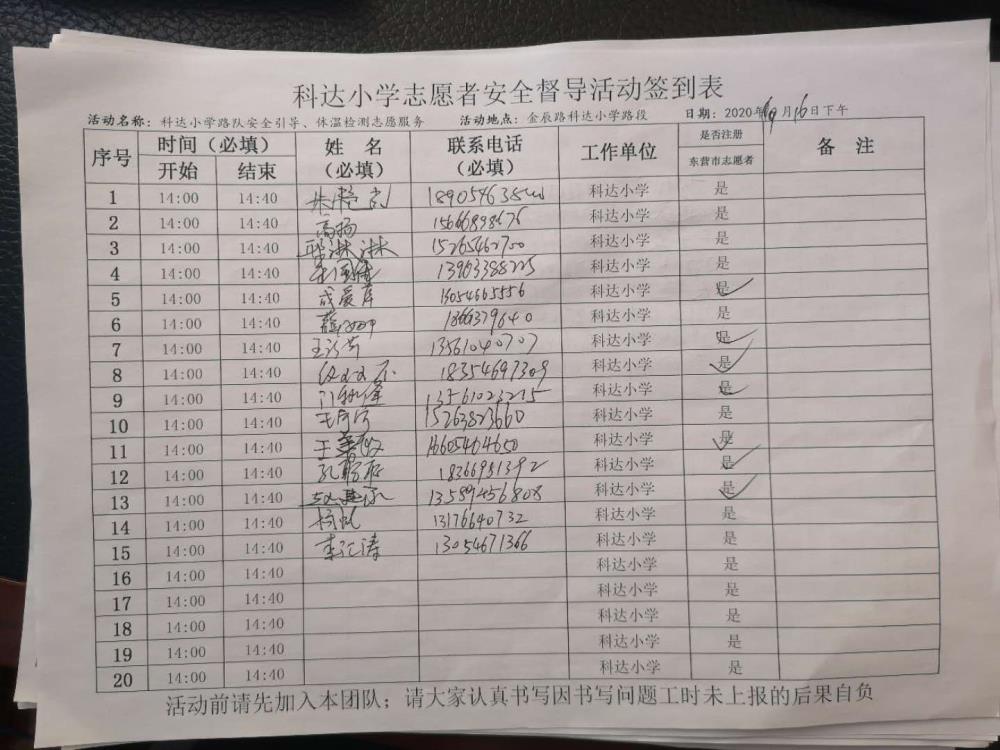 科达小学志愿者安全督导活动签到表
活动名称：科达小学路队安全引导、体温检测志愿服务 活动地点：金辰路科达小学路段 日期：2020年9月16日下午
序号 时间（必填） 姓 名（必填） 联系电话（必填） 工作单位 是否注册东营市志愿者 备 注
开始 结束
1 14:00 14:40 科达小学 是
2 14:00 14:40 高扬 15666898676 科达小学 是
3 14:00 14:40 淋淋 15265462700 科达小学 是
4 14:00 14:40 13963388225 科达小学 是
5 14:00 14:40 成晨 13054665556 科达小学 是
6 14:00 14:40 18663779640 科达小学 是
7 14:00 14:40 王 13561040707 科达小学 是
8 14:00 14:40 18354697309 科达小学 是
9 14:00 14:40 13561023215 科达小学 是
10 14:00 14:40 王 15263823660 科达小学 是
11 14:00 14:40 王 16605464650 科达小学 是
12 14:00 14:40 孔 18366951392 科达小学 是
13 14:00 14:40 13589456808 科达小学 是
14 14:00 14:40 杨 13176640732 科达小学 是
15 14:00 14:40 李汇涛 13054671366 科达小学 是
16 14:00 14:40 科达小学 是
17 14:00 14:40 科达小学 是
18 14:00 14:40 科达小学 是
19 14:00 14:40 科达小学 是
20 14:00 14:40 科达小学 是
活动前请先加入本团队；请大家认真书写因书写问题工时未上报的后果自负